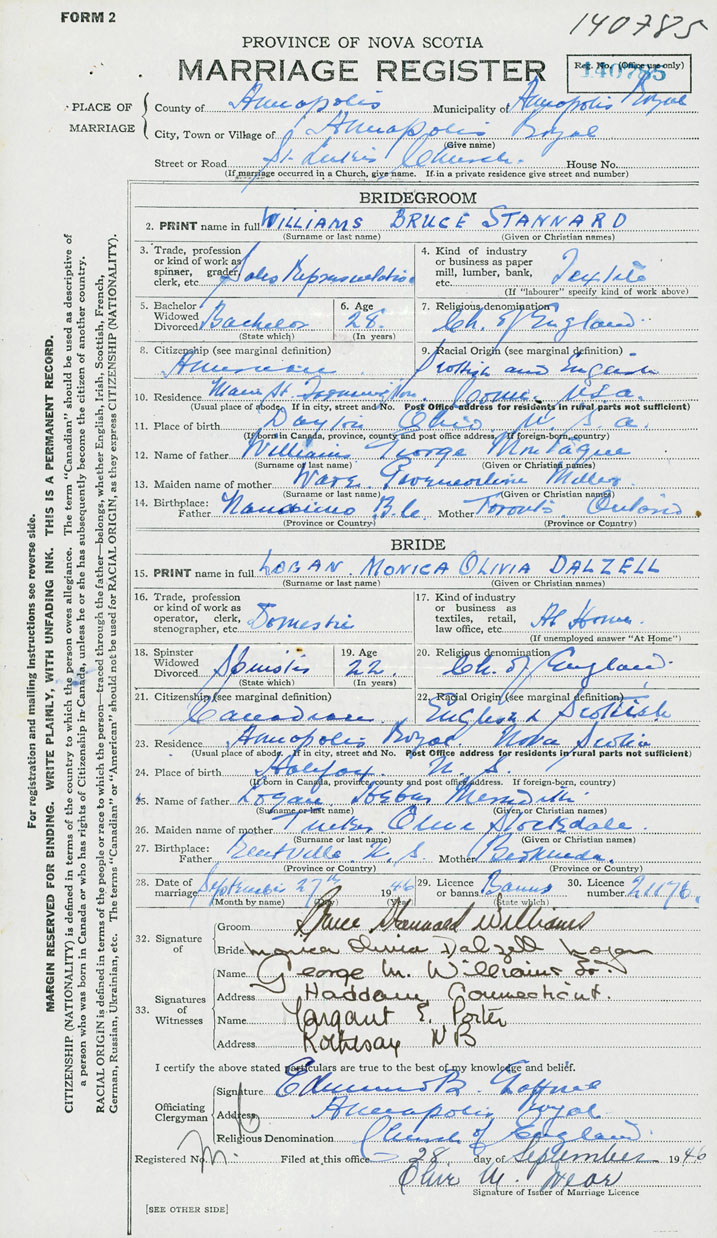 FORM 2
140785
PROVINCE OF NOVA SCOTIA
MARRIAGE REGISTER
Reg. No. (Office use only)
140785
PLACE OF MARRIAGE
County of Annapolis Municipality of Annapolis Royal
City, Town or Village of Annapolis Royal
(Give name)
Street or Road St. Luke's Church. House No.
(If marriage occurred in a Church, give name. If in a private residence give street and number)
BRIDEGROOM
2. PRINT name in full WILLIAMS BRUCE STANNARD
(Surname or last name) (Given or Christian names)
3. Trade, profession or kind of work as spinner, grader, clerk, etc. Sales Representative
4. Kind of industry or business as paper mill, lumber, bank, etc. Textile
(If "labourer" specify kind of work above)
5. Bachelor Widowed Divorced Bachelor
(State which)
6. Age 28.
(In years)
7. Religious denomination Ch. of England
8. Citizenship (see marginal definition) American
9. Racial Origin (see marginal definition) Scottish and English
10. Residence Main St. Conn. U.S.a.
(Usual place of abode. If in city, street and No. Post Office address for residents in rural parts not sufficient)
11. Place of birth Dayton Ohio U.S.a.
(If born in Canada, province, county and post office address. If foreign-born, country)
12. Name of father Williams George Montague
(Surname or last name) (Given or Christian names)
13. Maiden name of mother Ware Miller
(Surname or last name) (Given or Christian names)
14. Birthplace: Father Nanaimo B.C. Mother Toronto Ontario
(Province or Country) (Province or Country)
BRIDE
15. PRINT name in full LOGAN MONICA OLIVIA DALZELL
(Surname or last name) (Given or Christian names)
16. Trade, profession or kind of work as operator, clerk, stenographer, etc. Domestic
17. Kind of industry or business as textiles, retail, law office, etc. At Home
(If unemployed answer "At Home")
18. Spinster Widowed Divorced Spinster
(State which)
19. Age 22.
(In years)
20. Religious denomination Ch. of England.
21. Citizenship (see marginal definition) Canadian
22. Racial Origin (see marginal definition) English & Scottish
23. Residence Annapolis Royal Nova Scotia
(Usual place of abode. If in city, street and No. Post Office address for residents in rural parts not sufficient)
24. Place of birth Halifax N.S.
(If born in Canada, province, county and post office address. If foreign-born, country)
25. Name of father Logan Meredith
(Surname or last name) (Given or Christian names)
26. Maiden name of mother Tucker Olivia Stockdale
(Surname or last name) (Given or Christian names)
27. Birthplace: Father Kentville N.S Mother Bermuda.
(Province or Country) (Province or Country)
28. Date of marriage September 27th 1946
(Month by name) (Day) (Year)
29. Licence or banns Banns
(State which)
30. Licence number 21176.
32. Signature of
Groom Bruce Stannard Williams
Bride Monica Olivia Dalzell Logan
33. Signatures of Witnesses
Name George M. Williams Sr.
Address Haddam, Connecticut.
Name Margaret E. Porter
Address Rothesay NB
I certify the above stated particulars are true to the best of my knowledge and belief.
Officiating Clergyman
Signature Edmund B.
Address Annapolis Royal
Religious Denomination Church of England
Registered No. Filed at this office 28 day of September 1946
Olive M.
Signature of Issuer of Marriage Licence
[SEE OTHER SIDE]
For registration and mailing instructions see reverse side.
MARGIN RESERVED FOR BINDING. WRITE PLAINLY, WITH UNFADING INK. THIS IS A PERMANENT RECORD.
CITIZENSHIP (NATIONALITY) is defined in terms of the country to which the person owes allegiance. The term "Canadian" should be used as descriptive of
a person who was born in Canada or who has rights of Citizenship in Canada, unless he or she has subsequently become the citizen of another country.
RACIAL ORIGIN is defined in terms of the people or race to which the person—traced through the father—belongs, whether English, Irish, Scottish, French,
German, Russian, Ukrainian, etc. The terms "Canadian" or "American" should not be used for RACIAL ORIGIN, as they express CITIZENSHIP (NATIONALITY).